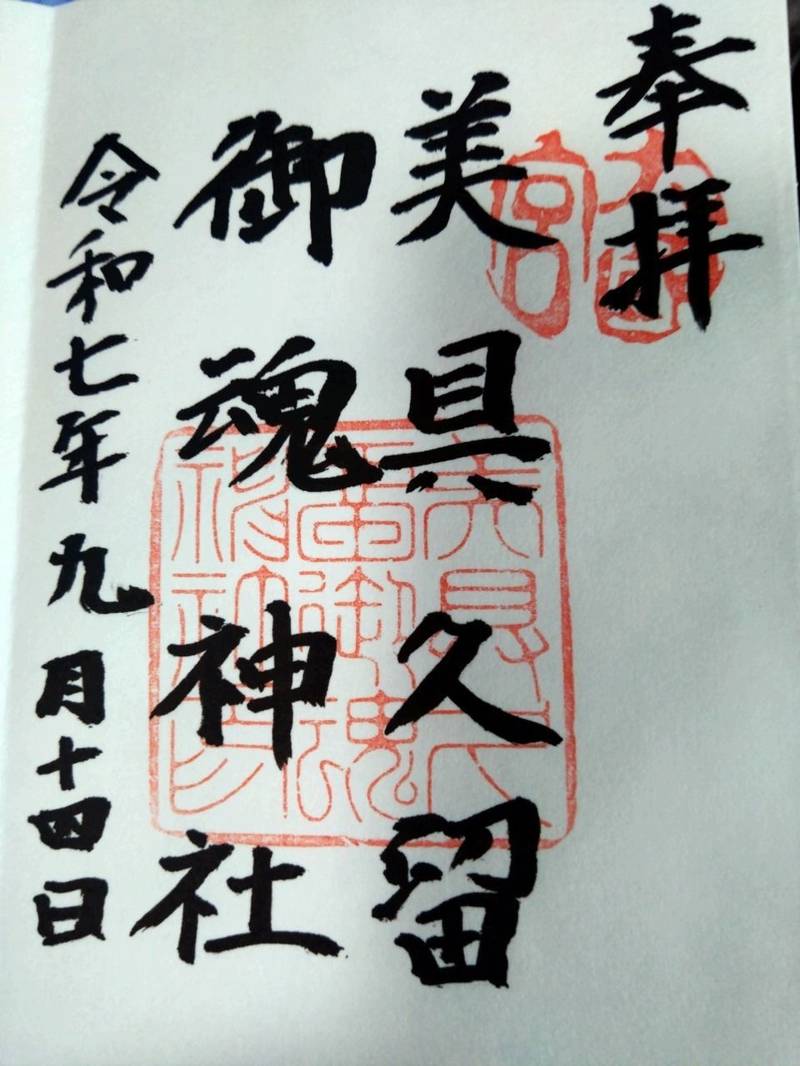 奉拝
美具久留
御魂神社
令和七年九月十四日